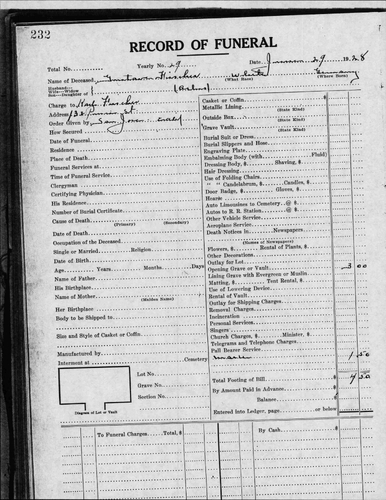 232
RECORD OF FUNERAL
Total No. Yearly No. 29 Date 29 1928
Name of Deceased Gustave Fischer White Germany
(What Race) (Where Born)
Husband—
Wife—Widow
Son—Daughter of
Charge to Fischer
Address
Order Given by Sam Jones
How Secured
Date of Funeral
Residence
Place of Death
Funeral Services at
Time of Funeral Service
Clergyman
Certifying Physician
His Residence
Number of Burial Certificate
Cause of Death
(Primary) (Secondary)
Date of Death
Occupation of the Deceased
Single or Married Religion
Date of Birth
Age Years Months Days
Name of Father
His Birthplace
Name of Mother
(Maiden Name)
Her Birthplace
Body to be Shipped to
Size and Style of Casket or Coffin
Manufactured by
Interment at Cemetery
Lot No.
Grave No.
Section No.
Diagram of Lot or Vault
Casket or Coffin
Metallic Lining
(State Kind)
Outside Box
(State Kind)
Grave Vault
(State Kind)
Burial Suit or Dress
Burial Slippers and Hose
Engraving Plate
Embalming Body (with Fluid)
Dressing Body, $ Shaving, $
Hair Dressing
Use of Folding Chairs
" " Candelabrum, $ Candles, $
Door Badge, $ Gloves, $
Hearse
Auto Limousines to Cemetery @ $
Autos to R. R. Station @ $
Other Vehicle Service
Aeroplane Service
Death Notices in Newspapers
(Names of Newspapers)
Flowers, $ Rental of Plants, $
Other Decorations
Outlay for Lot
Opening Grave or Vault 3 00
Lining Grave with Evergreen or Muslin
Matting, $ Tent Rental, $
Use of Lowering Device
Rental of Vault
Outlay for Shipping Charges
Removal Charges
Incineration
Personal Services
Singers
Church Charges, $ Minister, $
Telegrams and Telephone Charges
Pall Bearer Service
1 50
Total Footing of Bill $ 4 50
By Amount Paid in Advance
Balance
Entered into Ledger, page or below
To Funeral Charges Total, $ By Cash $